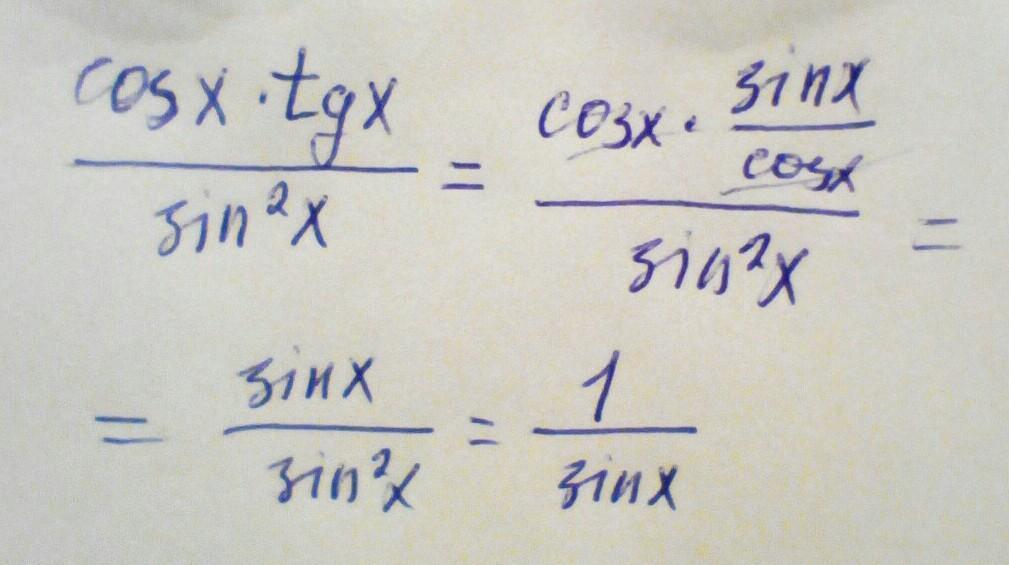 cosx·tgx / sin²x = cosx· sinx/cosx / sin²x =
= sinx / sin²x = 1 / sinx